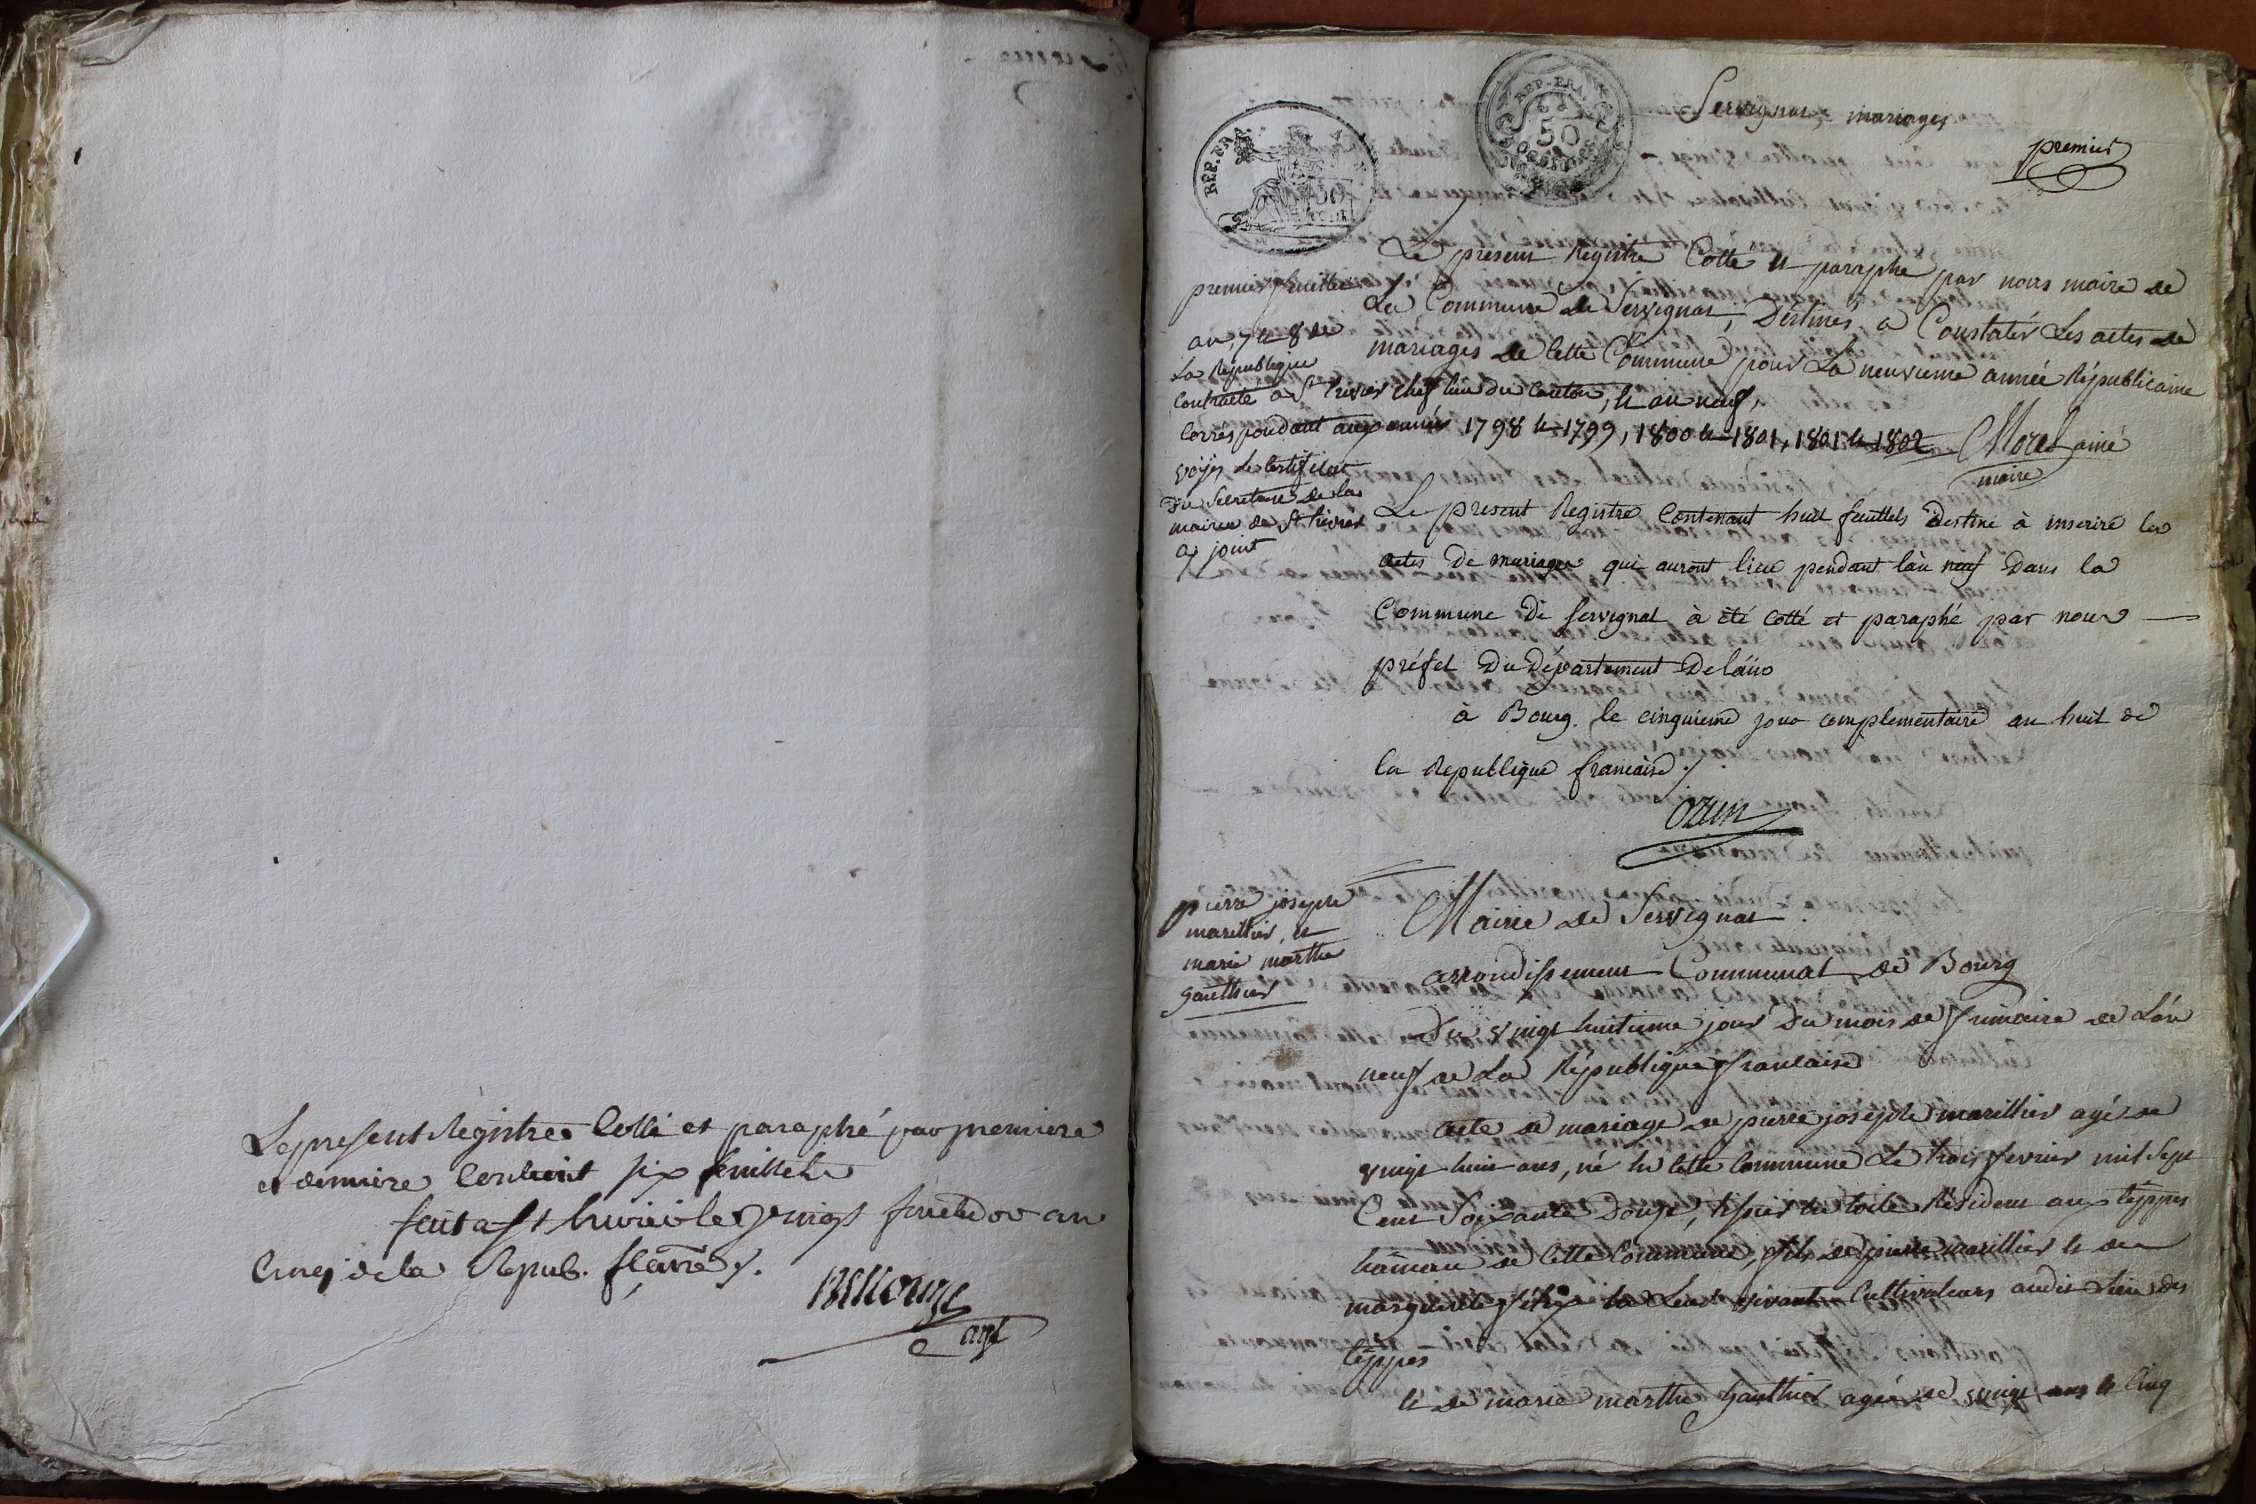 Le present Registre Cotté et paraphé par premiere
et derniere Contient six feuillets
fait a St trivier le vingt fructidor an
Cinq de la Repub. fçaise ./.
agt
REP. FRA.
REP. FRA.
50
Servignat, mariages
premier
Le present Registre Cotté et paraphé par nous maire de
La Commune de Servignat, Destiné a Constater Les actes de
mariages de Cette Commune pour La neuvieme année Républicaine
premier feuillet
an 7 et 8 de
La Republique
Contracté a St trivier chef lieu du canton, et an neuf,
Correspondant aux années 1798 et 1799, 1800 et 1801, 1801 et 1802 Morel ainé
maire
voyés le Certificat
Du Secretaire de la
mairie de St trivier
cy joint
Le present Registre Contenant huit feuillets Destiné à inscrire les
actes De mariages qui auront lieu pendant l'an neuf Dans la
Commune De Servignat à été Cotté et paraphé par nous
préfet Du Département De l'ain
à Bourg. le cinquieme jour complementaire an huit de
la Republique francaise ./.
Ozun
pierre joseph
marillier, et
marie marthe
gauthier
Mairie de Servignat
arrondissement Communal de Bourg
Du vingt huitieme jour Du mois de frimaire de L'an
neuf de La République francaise
acte de mariage de pierre joseph marillier agé de
vingt huit ans, né en Cette Commune Le trois fevrier mil Sept
Cent Soixante Douze, tissier en toile Résident aux teppes
hameau de Cette Commune, fils de pierre marillier et de
marguerite Cultivateurs audit Lieu des
teppes
et de marie marthe gauthier agée de vingt ans et Cinq